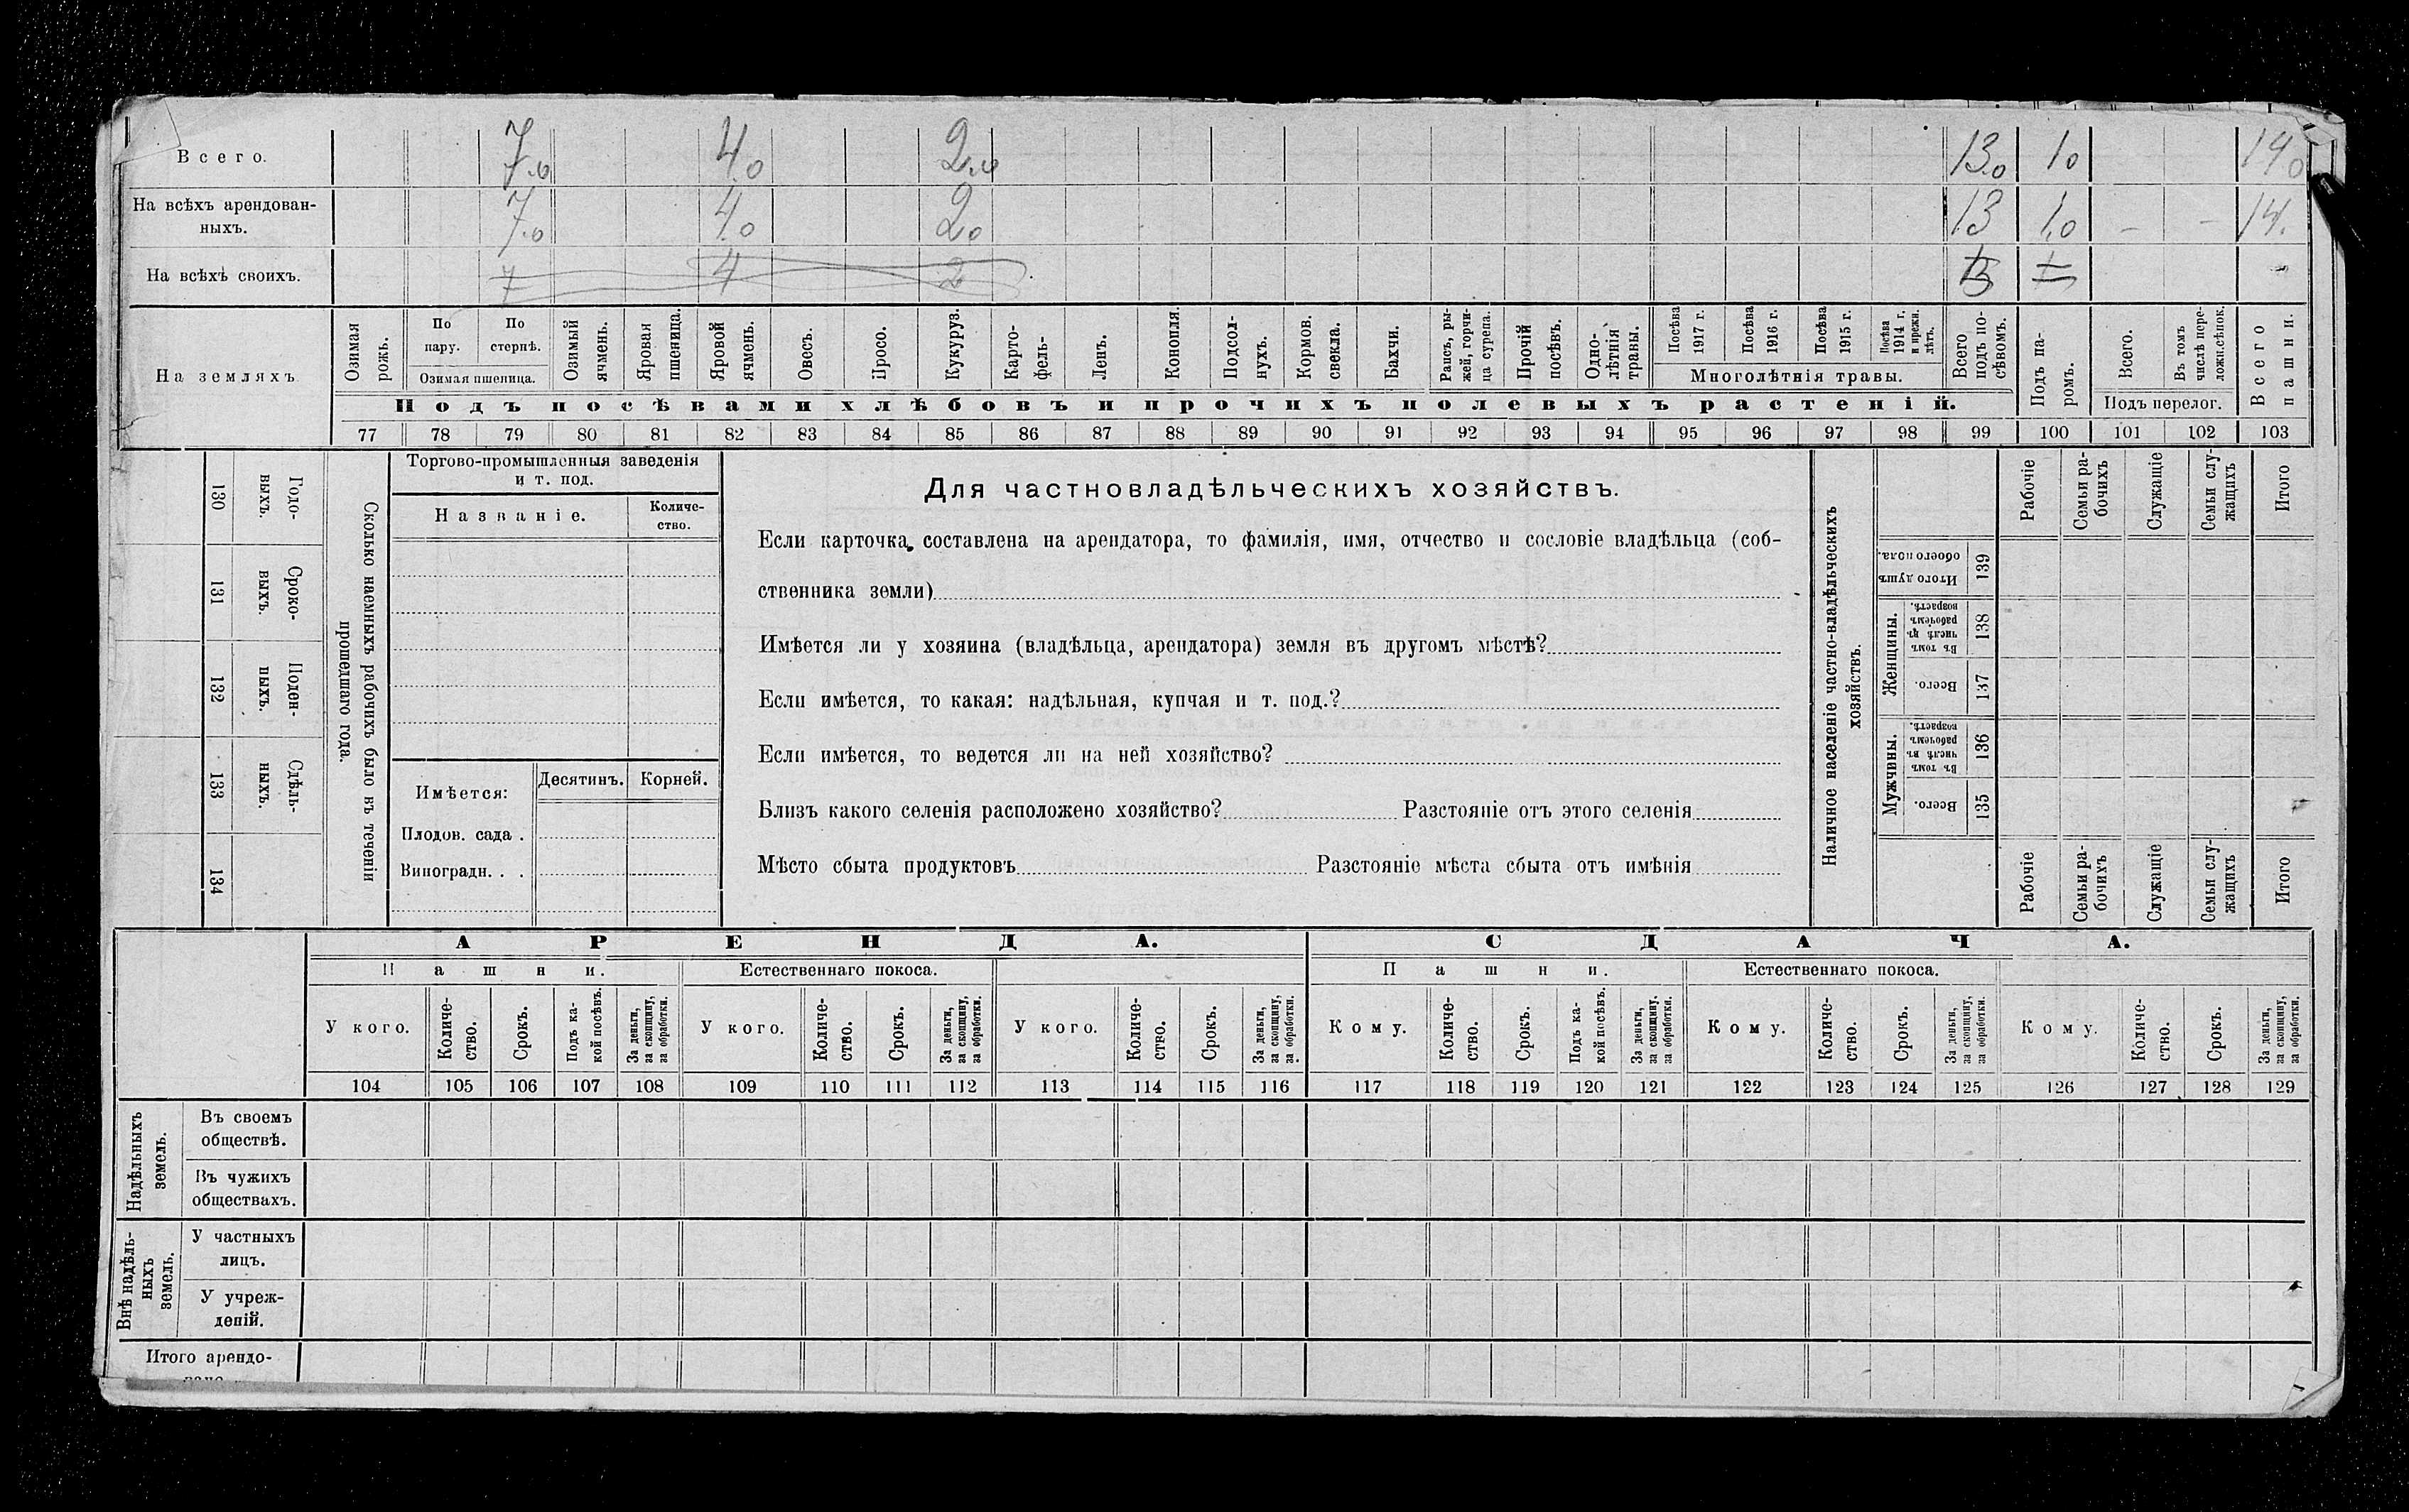 Всего. 7.0 4.0 2.0 13.0 1.0 14.0
На всѣхъ арендован-
ныхъ. 7.0 4.0 2.0 13 1.0 – – 14.
На всѣхъ своихъ. 7 4 2 13 1
На земляхъ
Озимая рожь.
По пару.
По стернѣ.
Озимая пшеница.
Озимый ячмень.
Яровая пшеница.
Яровой ячмень.
Овесъ.
Просо.
Кукуруз.
Карто-
фель-
Ленъ.
Конопля.
Подсол-
нухъ.
Кормов.
свекла.
Бахчи.
Рапсъ, ры-
жей, горчи-
ца сурепа.
Прочій
посѣвъ.
Одно-
лѣтнія
травы.
Посѣва
1917 г.
Посѣва
1916 г.
Посѣва
1915 г.
Посѣва
1914 г.
и прежн.
лѣтъ.
Многолѣтнія травы.
Всего
подъ по-
сѣвомъ.
Подъ па-
ромъ.
Всего.
Въ томъ
числѣ пере-
ложн.сѣнок.
Подъ перелог.
Всего
пашни.
Подъ посѣвами хлѣбовъ и прочихъ полевыхъ растеній.
77 78 79 80 81 82 83 84 85 86 87 88 89 90 91 92 93 94 95 96 97 98 99 100 101 102 103
130 Годо-
выхъ.
131 Сроко-
выхъ.
132 Поден-
ныхъ.
133 Сдѣль-
ныхъ.
134
Сколько наемныхъ рабочихъ было въ теченіи
прошедшаго года.
Торгово-промышленныя заведенія
и т. под.
Названіе.
Количе-
ство.
Имѣется:
Десятинъ. Корней.
Плодов. сада .
Виноградн. . .
Для частновладѣльческихъ хозяйствъ.
Если карточка составлена на арендатора, то фамилія, имя, отчество и сословіе владѣльца (соб-
ственника земли)
Имѣется ли у хозяина (владѣльца, арендатора) земля въ другомъ мѣстѣ?
Если имѣется, то какая: надѣльная, купчая и т. под.?
Если имѣется, то ведется ли на ней хозяйство?
Близъ какого селенія расположено хозяйство? Разстояніе отъ этого селенія
Мѣсто сбыта продуктовъ Разстояніе мѣста сбыта отъ имѣнія
Наличное населеніе частно-владѣльческихъ
хозяйствъ.
Рабочіе
Семьи ра-
бочихъ
Служащіе
Семьи слу-
жащихъ
Итого
Итого душъ
обоего пола.
139
Женщины.
Въ томъ
числѣ въ
рабочемъ
возрастѣ.
138
Всего.
137
Мужчины.
Въ томъ
числѣ въ
рабочемъ
возрастѣ.
136
Всего.
135
Рабочіе
Семьи ра-
бочихъ
Служащіе
Семьи слу-
жащихъ
Итого
АРЕНДА. СДАЧА.
Пашни. Естественнаго покоса. Пашни. Естественнаго покоса.
У кого.
Количе-
ство.
Срокъ.
Подъ ка-
кой посѣвъ.
За деньги,
за скопщину,
за обработки.
У кого.
Количе-
ство.
Срокъ.
За деньги,
за скопщину,
за обработки.
У кого.
Количе-
ство.
Срокъ.
За деньги,
за скопщину,
за обработки.
Кому.
Количе-
ство.
Срокъ.
Подъ ка-
кой посѣвъ.
За деньги,
за скопщину,
за обработки.
Кому.
Количе-
ство.
Срокъ.
За деньги,
за скопщину,
за обработки.
Кому.
Количе-
ство.
Срокъ.
За деньги,
за скопщину,
за обработки.
104 105 106 107 108 109 110 111 112 113 114 115 116 117 118 119 120 121 122 123 124 125 126 127 128 129
Надѣльныхъ
земель.
Въ своемъ
обществѣ.
Въ чужихъ
обществахъ.
Внѣ надѣль-
ныхъ
земель.
У частныхъ
лицъ.
У учреж-
деній.
Итого арендо-